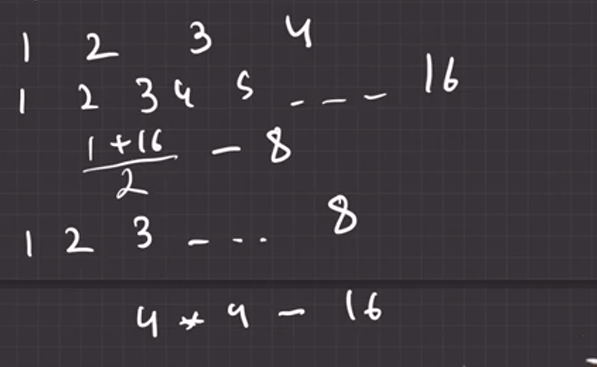 1 2 3 4
1 2 3 4 5 --- 16
1+16
/2 - 8
1 2 3 --.. 8
4 * 4 - 16